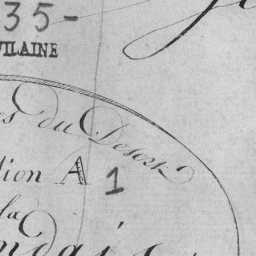 35-
VILAINE
es du Desert
tion A 1
la